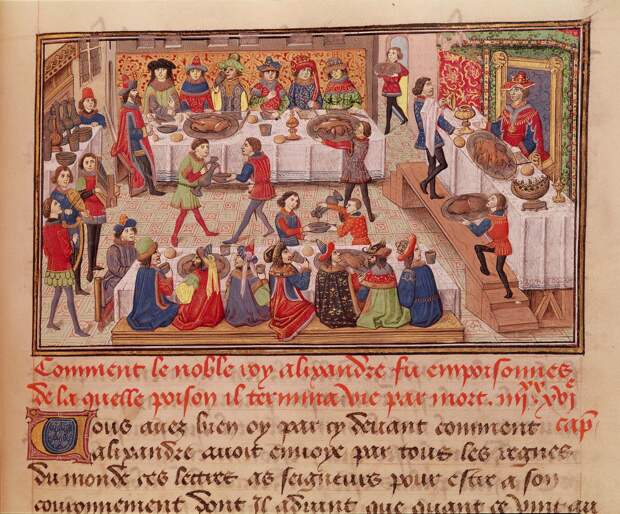 Comment le noble roy alixandre fu emporsonnes
de la quelle poison il termina vie par mort. iiii xx xvi e
Vous auez bien oy par cy deuant comment cap
alixandre auoit enuoye par tous les regnes
du monde ces lettres as seigneurs pour estre a son
couronnement dont Il aduint que quant ce vint au